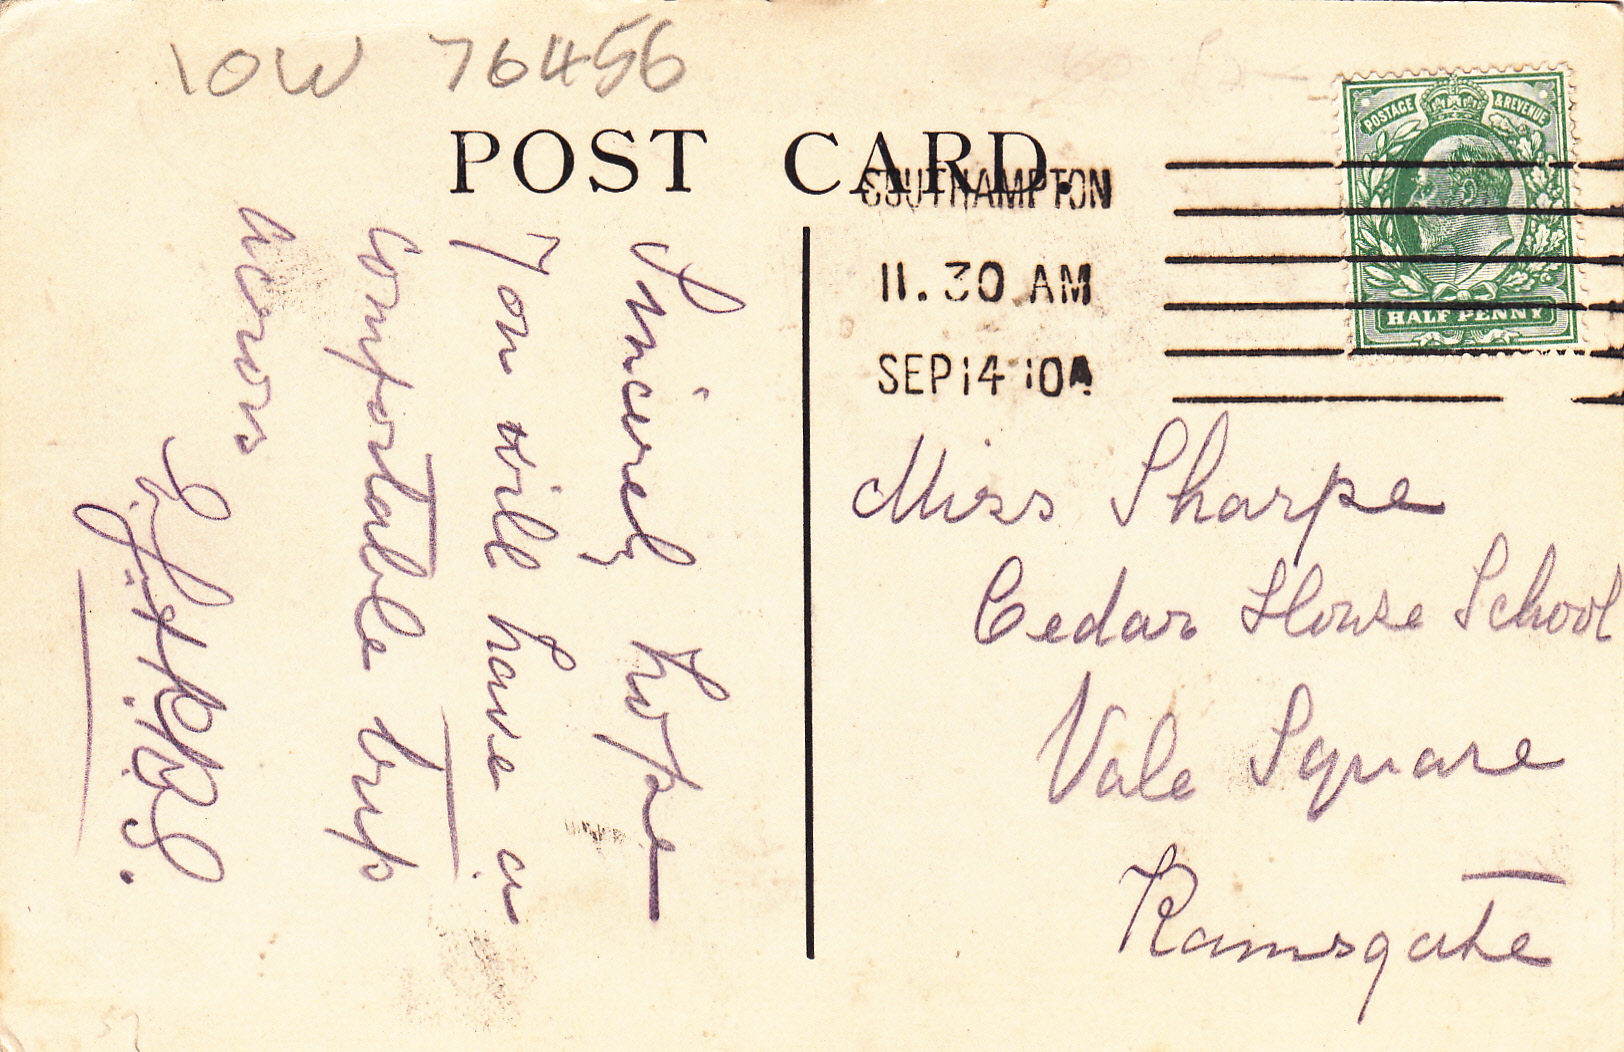 IOW 76456
POST CARD.
SOUTHAMPTON
11.30 AM
SEP 14 10A
POSTAGE & REVENUE
HALF PENNY
Sincerely hope
you will have a
comfortable trip
across
Miss Sharpe
Cedar House School
Vale Square
Ramsgate